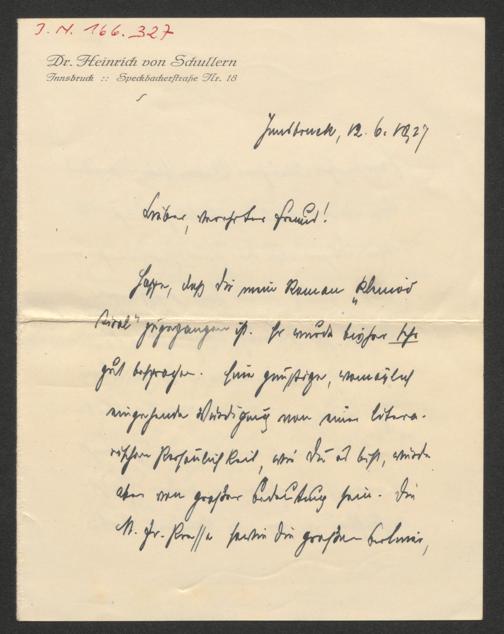 J. N. 166.327
Dr. Heinrich von Schullern
Innsbruck :: Speckbacherstraße Nr. 18
Innsbruck, 12. 6. 1927
Lieber, verehrter Freund!
Hoffe, daß dir mein Roman
zugegangen ist. Er wurde bisher sehr
gut besprochen. Eine günstige, womöglich
eingehende Würdigung von einer litera-
rischen Persönlichkeit, wie du es bist, würde
aber von großer Bedeutung sein. Die
N. Fr. Presse sowie die großen Berliner,